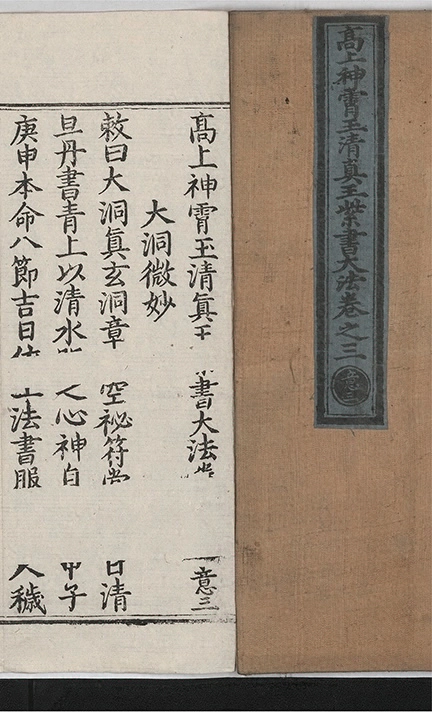 髙上神霄玉清眞王紫書大法卷之三
意三
髙上神霄玉清眞王 書大法 意三
大洞微妙
敕曰大洞眞玄洞章 空祕符 日清
旦丹書青上以清水 心神自 甲子
庚申本命八節吉日 法書服 穢